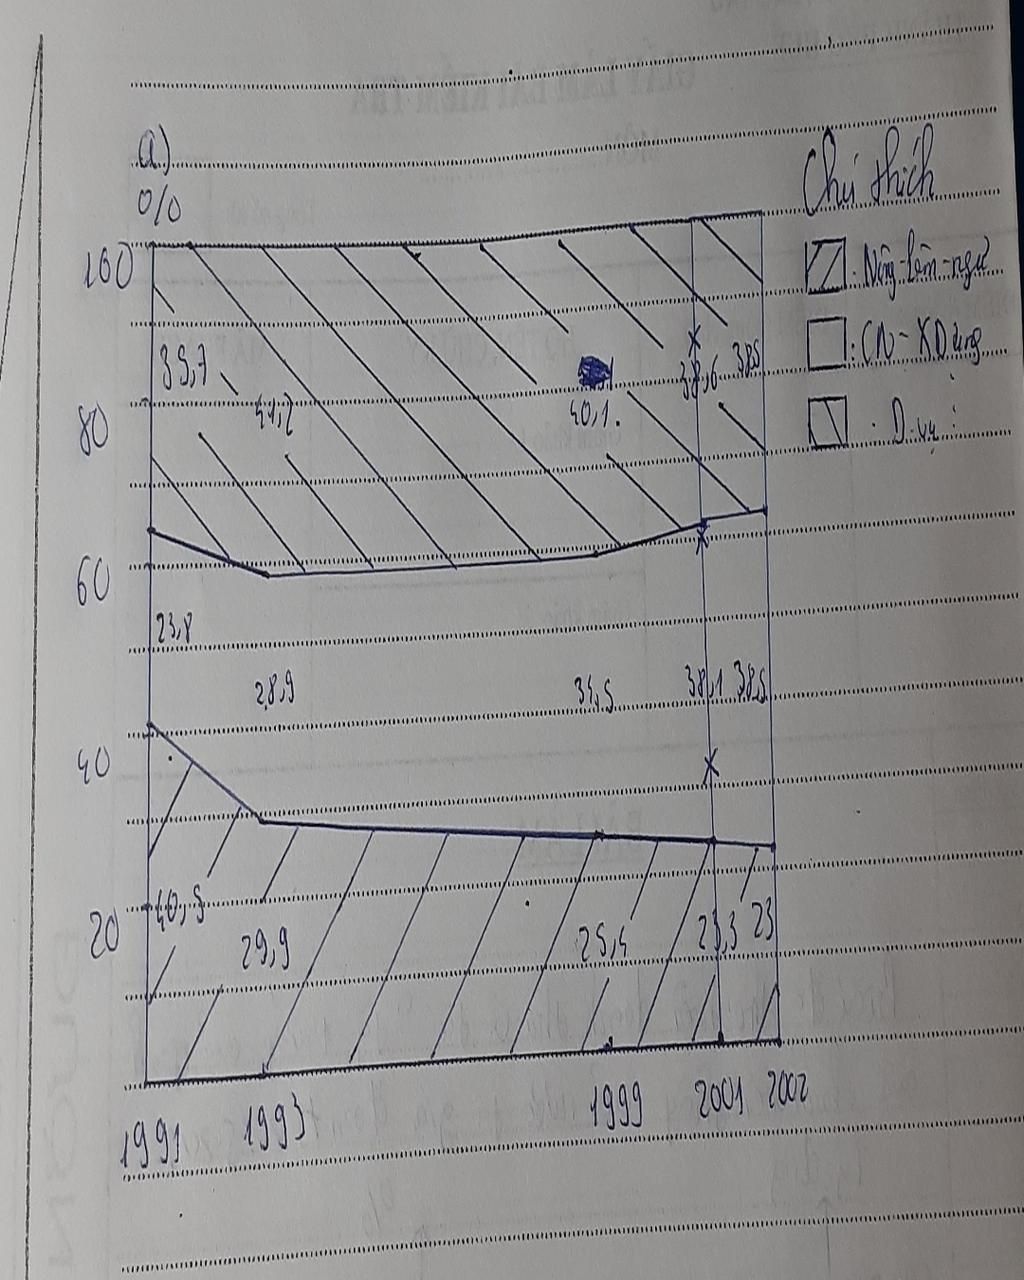 a)
%
Chú thích
100
: Nông-lâm-ngư
: CN-XDựng
: D.vụ
39,7
41,2
40,1.
38,6
38,5
80
60
23,8
28,9
34,5
38,1
38,5
40
40,5
29,9
25,4
23,3
23
20
1991
1993
1999
2001
2002